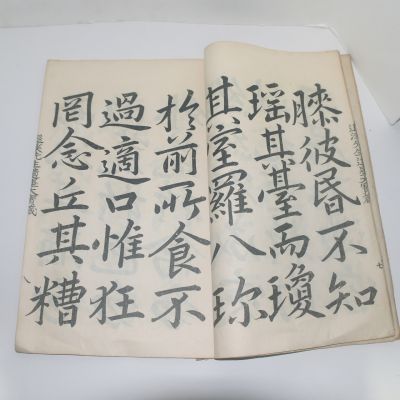 膝彼昏不知
瑶其臺而瓊
其室羅八珎
扵前所食不
過適口惟狂
罔念丘其糟
七
八